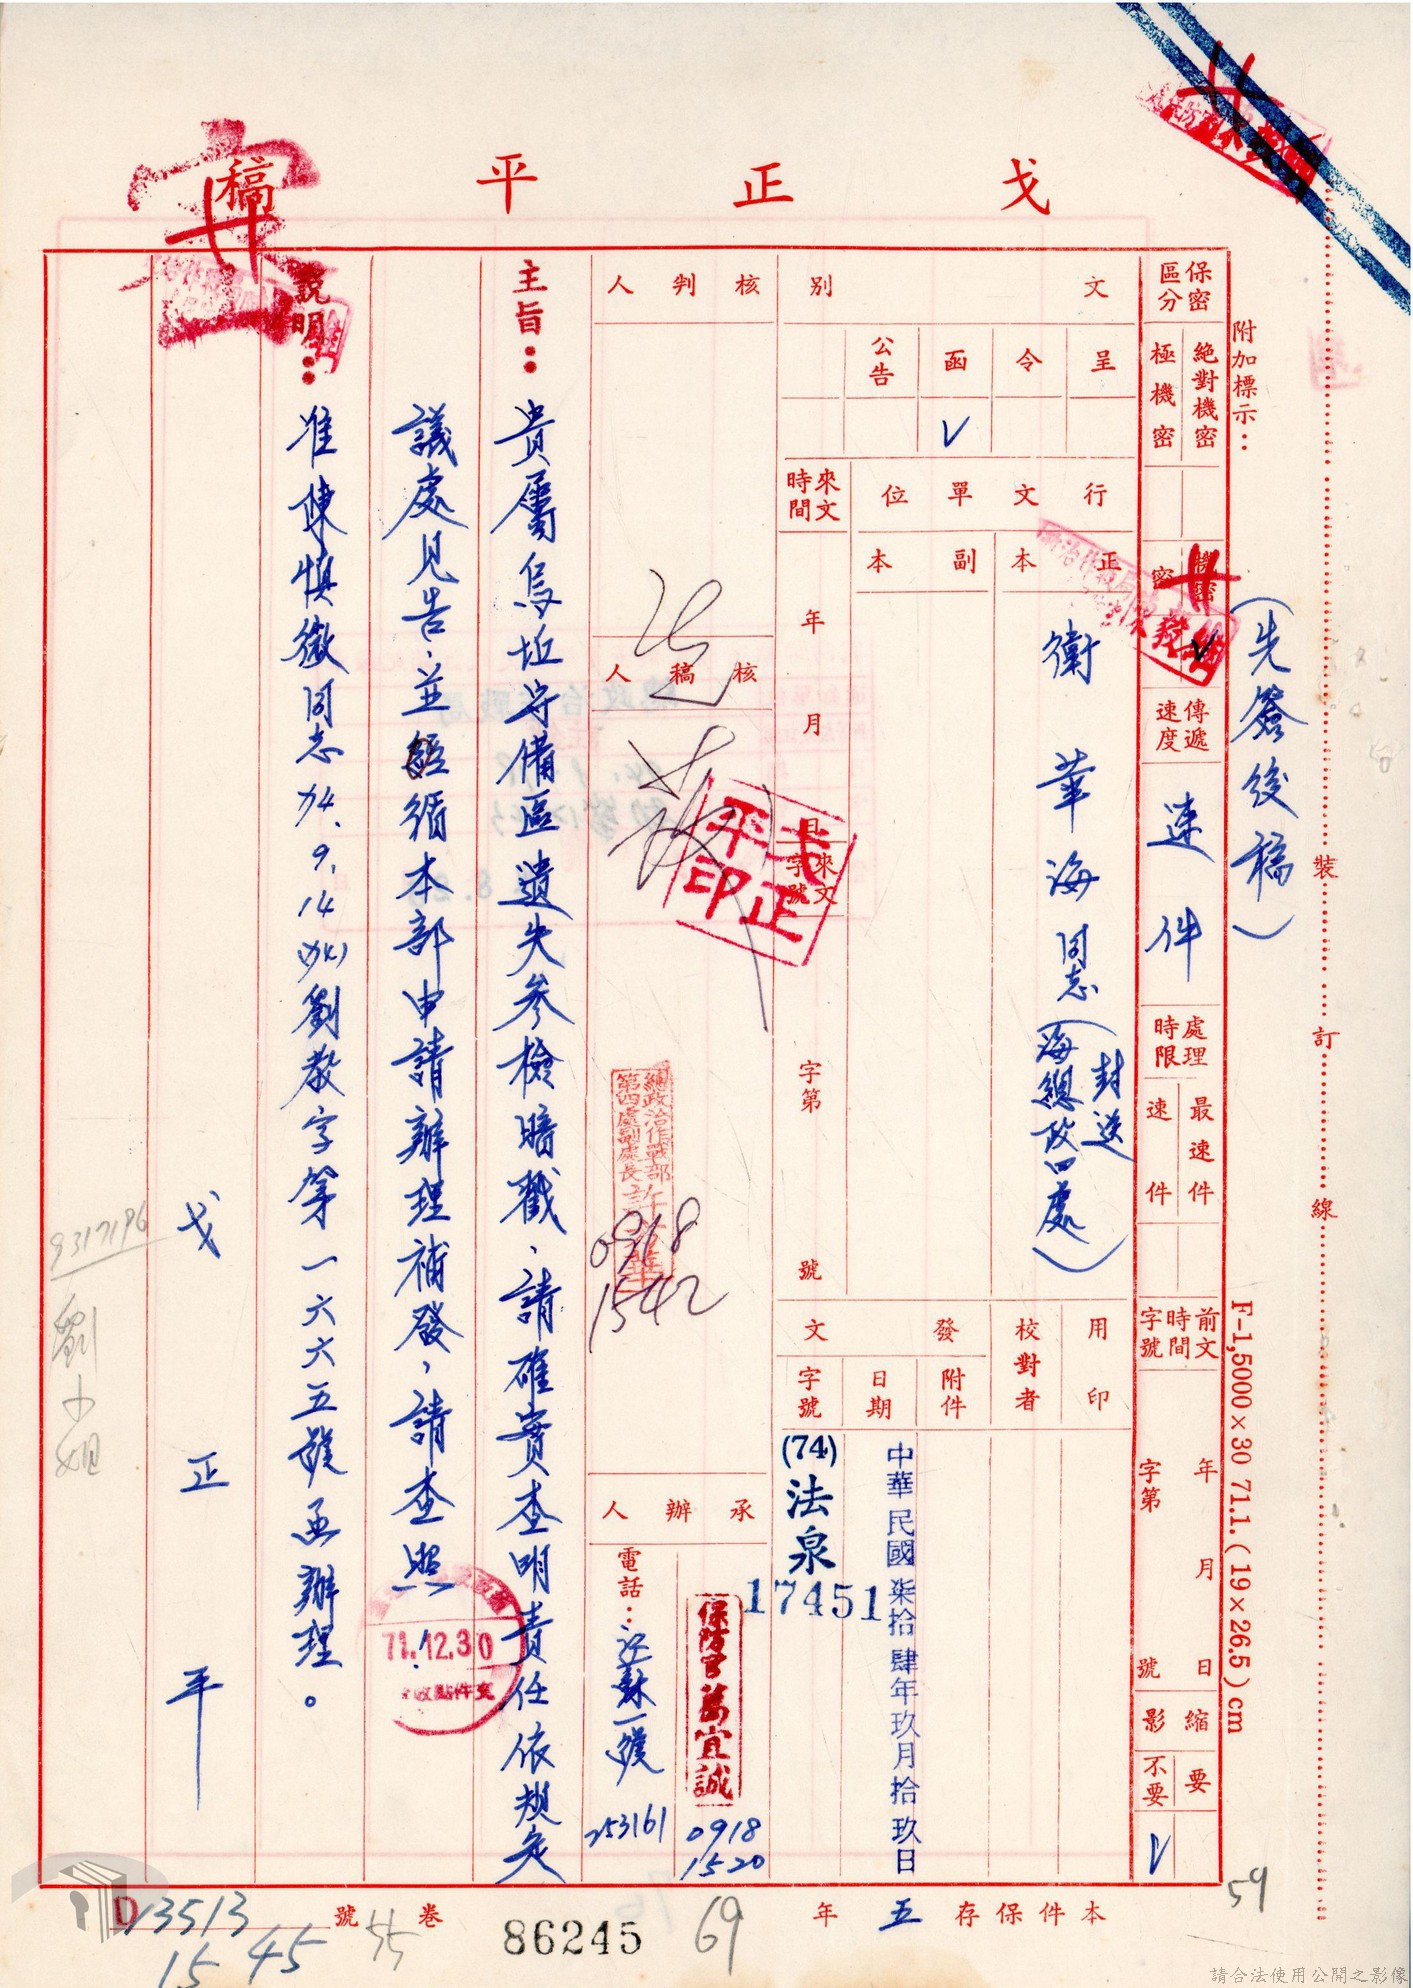 戈正平
稿
附加標示：
（先簽後稿）
F-1,5000×30 71.(19×26.5)cm
裝訂線
保密區分
絕對機密
極機密
機密
密
傳遞速度
速件
處理時限
最速件
速件
前文時間字號
年月日
字第號
縮影
要
不要
V
文別
呈
令
函
公告
V
行文單位
正本
副本
衛華海同志（海總政四處）
封送
來文時間
年月日
來文字號
字第號
用印
校對者
發文
附件
日期
中華民國柒拾肆年玖月拾玖日
字號
(74)法泉
17451
核判人
核稿人
戈正平印
總政治作戰部
第四處副處長
0918
1542
承辦人
保防官萬宜誠
0918
1520
電話：江蘇一號
253161
主旨：貴屬烏坵守備區遺失參檢暗戳、請確實查明責任依規定
議處見告、並經循本部申請辦理補發，請查照！
說明：准陳慎微同志74.9.14(水)劉教字第一六六五號函辦理。
戈正平
9317196
劉小姐
71.12.30
本件保存五年
59
69
86245
卷
號
55
D13513
15 45
請合法使用公開之影像